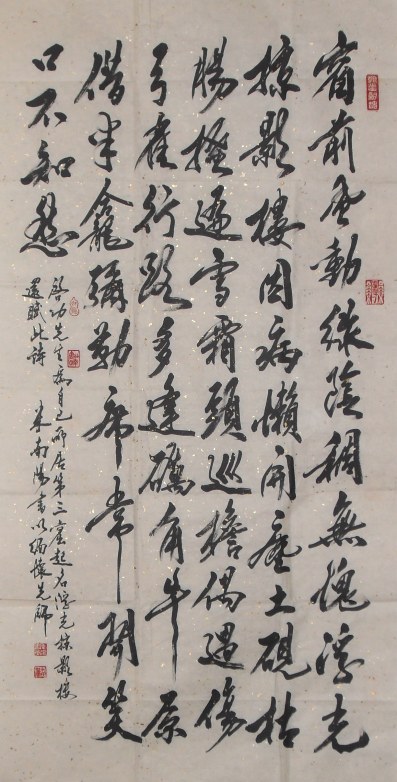 窗前風動綠陰稠無愧浮光
掠影樓因病懶開塵土硯枯
腸搔遍雪霜頭巡檐偶遇傷
弓雀行路多逢礪角牛原
借半龕彌勒席常開笑
口不知愁
啓功先生為自己所居第三起名浮光掠影樓
還賦此詩 米南陽書以緬懷先師